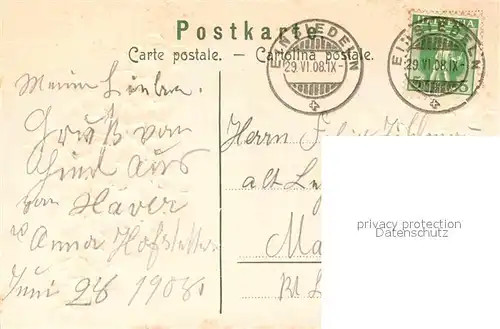 Postkarte
Carte postale. — Cartolina postale.
EINSIEDELN
29.VI.08.IX-
EINSIEDELN
29.VI.08.IX-
HELVETIA
5
Meine Lieben.
Gruß von
hier aus
von Xaver
u Anna Hofstetter
Juni 28 1908.
Herrn Felix
alt
Ma
Kt L
privacy protection
Datenschutz